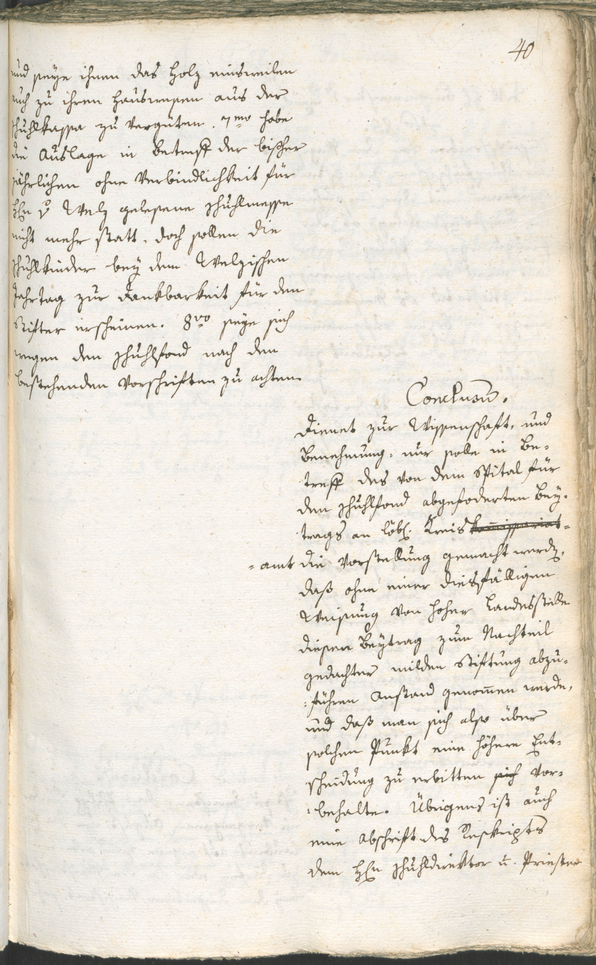 40
und seye ihnen das Holz einsweilen
auch zu ihren Hauswesen aus der
Schuhlkassa zu vergüten. 7mo habe
die Auslage in Betreff der bisher
jährlichen ohne Verbindlichkeit für
H v Welz gelesene Schuhlmesse
nicht mehr statt. doch sollen die
Schuhlkinder bey dem Welzischen
Jahrtag zur Dankbarkeit für den
Stifter erscheinen. 8vo seye sich
wegen dem Schuhlfond nach den
bestehenden Vorschriften zu achten.
Conclusum.
Dienet zur Wissenschaft, und
Benehmung, nur solle in Be-
treff des von dem Spital für
den Schuhlfond abgeforderten Bey-
trags an löbl. Kreis
-amt die Vorstellung gemacht werden,
daß ohne einer diesfälligen
Weisung von hoher Landesstelle
diesen Beytrag zum Nachteil
gedachter milden Stiftung abzu-
führen Anstand genommen werde,
und daß man sich also über
solchen Punkt eine höhere Ent-
scheidung zu erbitten sich vor-
behalte. Übrigens ist auch
eine Abschrift des Reskripts
dem H Schuhldirektor u. Priester